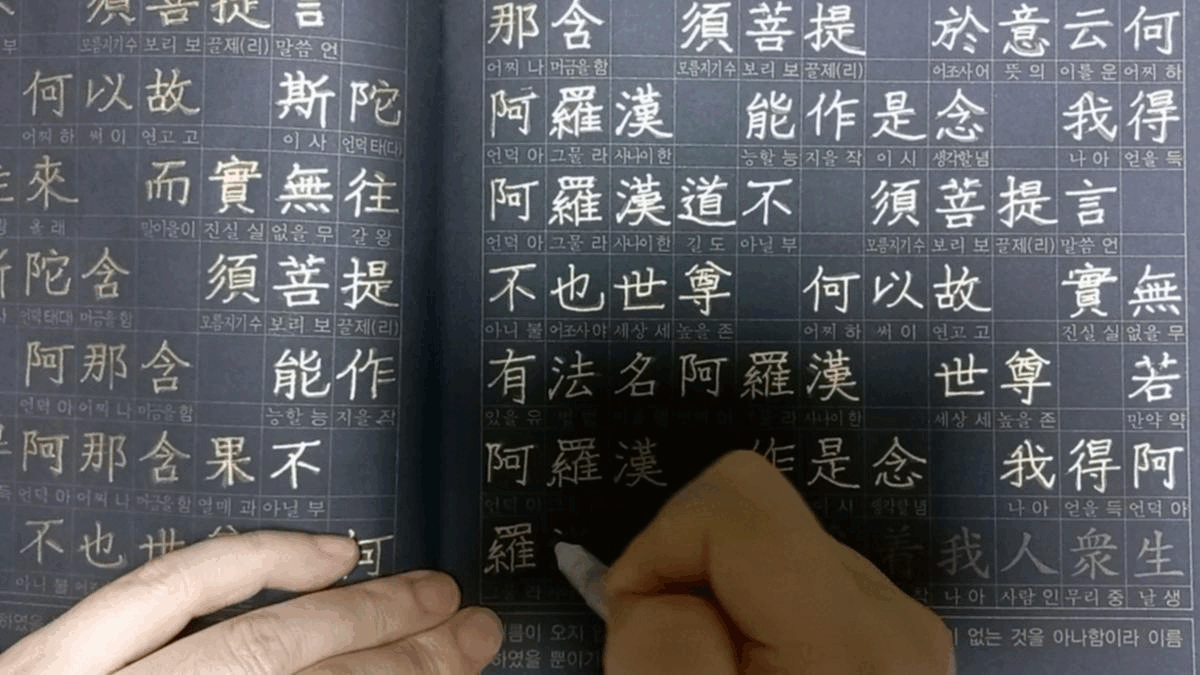 須菩提言
모름지기 수 보리 보 끌 제(리) 말씀 언
何以故 斯陀
어찌 하 써 이 연고 고 이 사 언덕 타(다)
來 而實無往
올 래 말이을 이 진실 실 없을 무 갈 왕
陀含 須菩提
언덕 태(대) 머금을 함 모름지기 수 보리 보 끌 제(리)
阿那含 能作
언덕 아 어찌 나 머금을 함 능할 능 지을 작
阿那含果不
언덕 아 어찌 나 머금을 함 열매 과 아닐 부
不也世
아니 불
하였을
那含 須菩提 於意云何
어찌 나 머금을 함 모름지기 수 보리 보 끌 제(리) 어조사 어 뜻 의 이를 운 어찌 하
阿羅漢 能作是念 我得
언덕 아 그물 라 사나이 한 능할 능 지을 작 이 시 생각할 념 나 아 얻을 득
阿羅漢道不 須菩提言
언덕 아 그물 라 사나이 한 길 도 아닐 부 모름지기 수 보리 보 끌 제(리) 말씀 언
不也世尊 何以故 實無
아니 불 어조사 야 세상 세 높을 존 어찌 하 써 이 연고 고 진실 실 없을 무
有法名阿羅漢 世尊 若
있을 유 사나이 한 세상 세 높을 존 만약 약
阿羅漢 作是念 我得阿
언덕 아 이 시 생각할 념 나 아 얻을 득 언덕 아
羅 着我人衆生
그물 라 나 아 사람 인 무리 중 날 생
이 오지 없는 것을 아나함이라 이름
하였을 뿐이